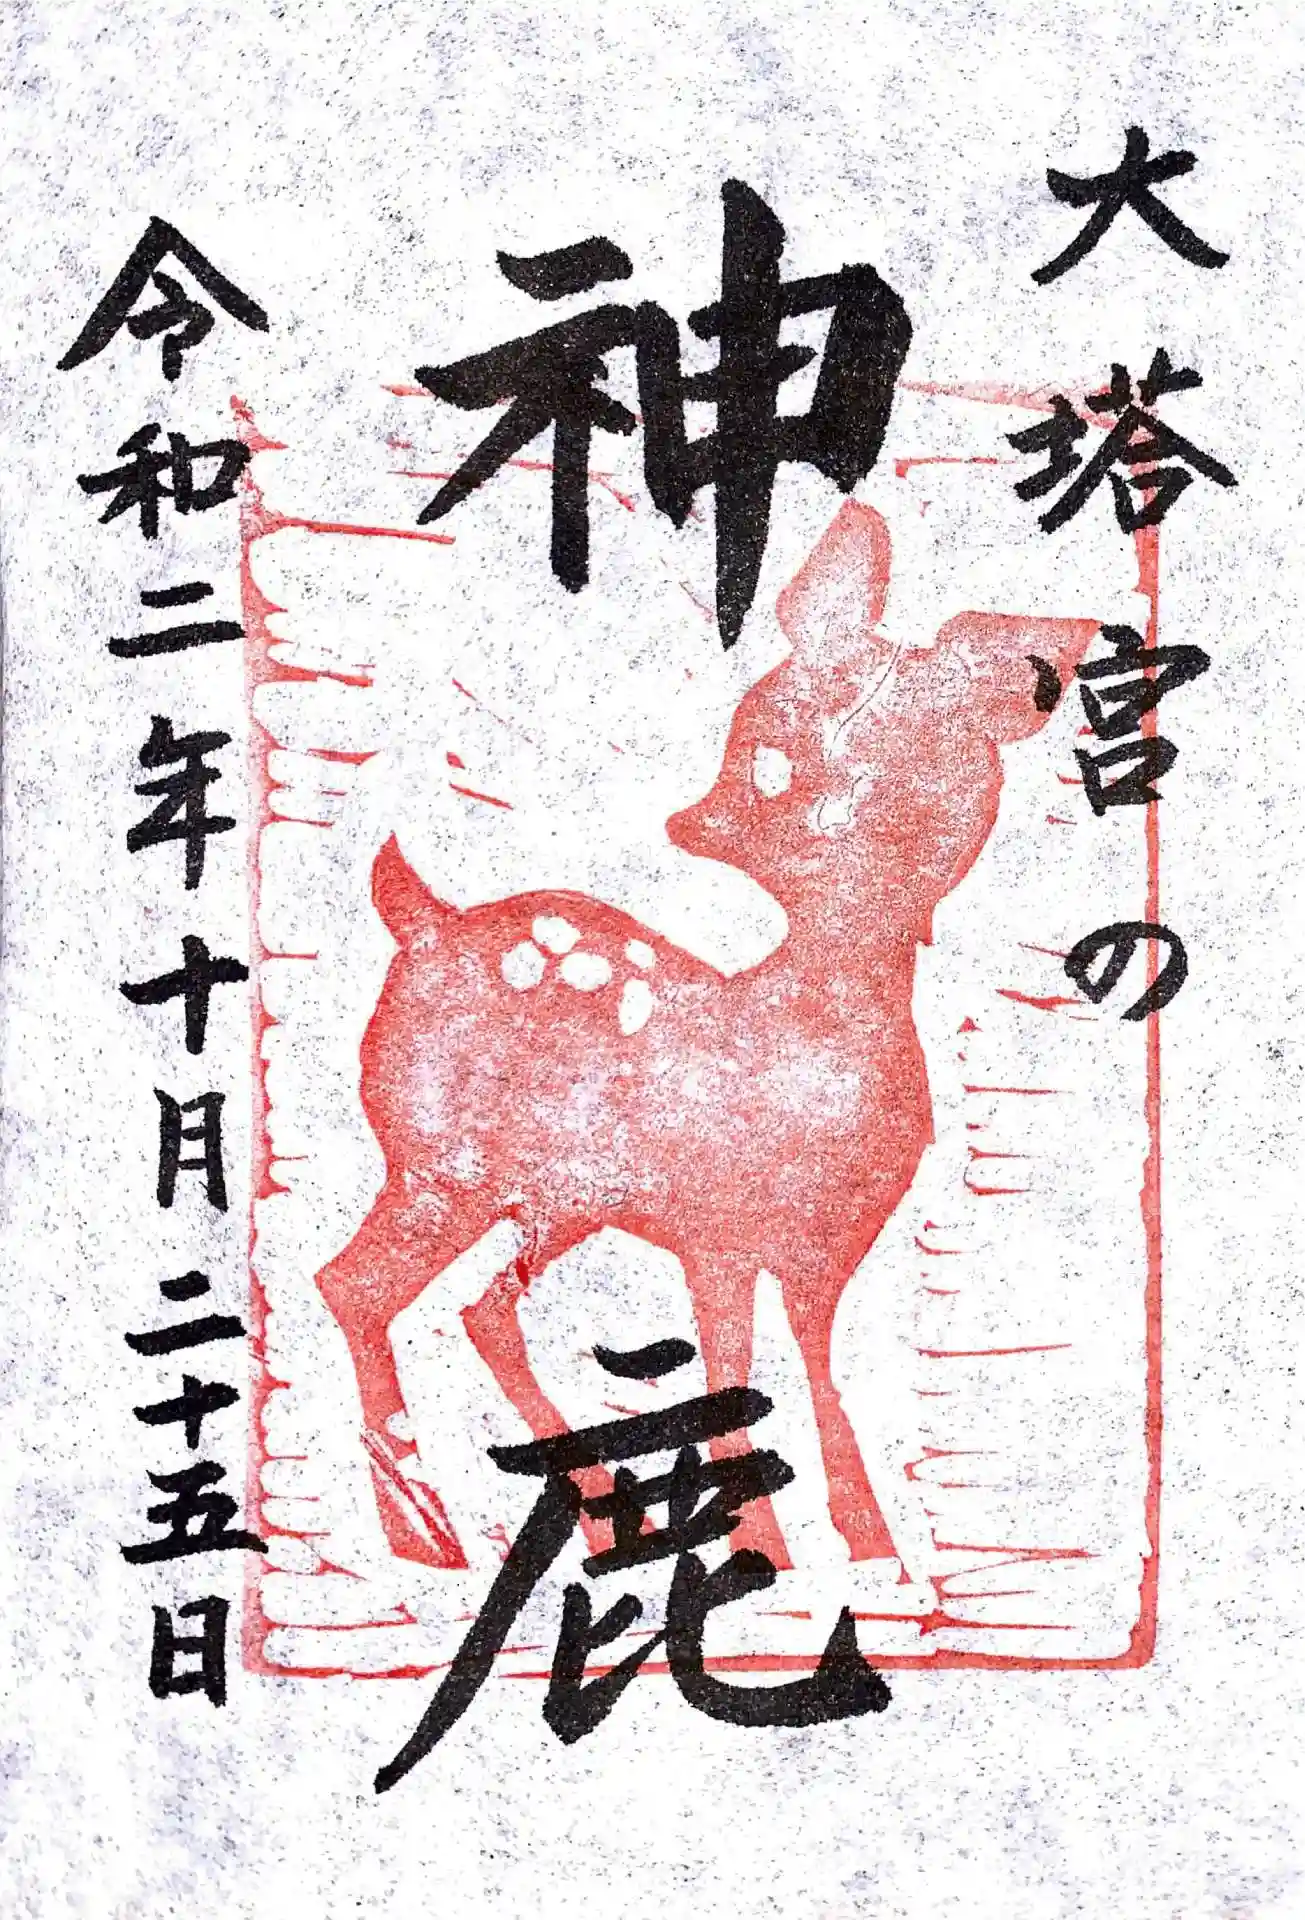 大塔宮の
神鹿
令和二年十月二十五日